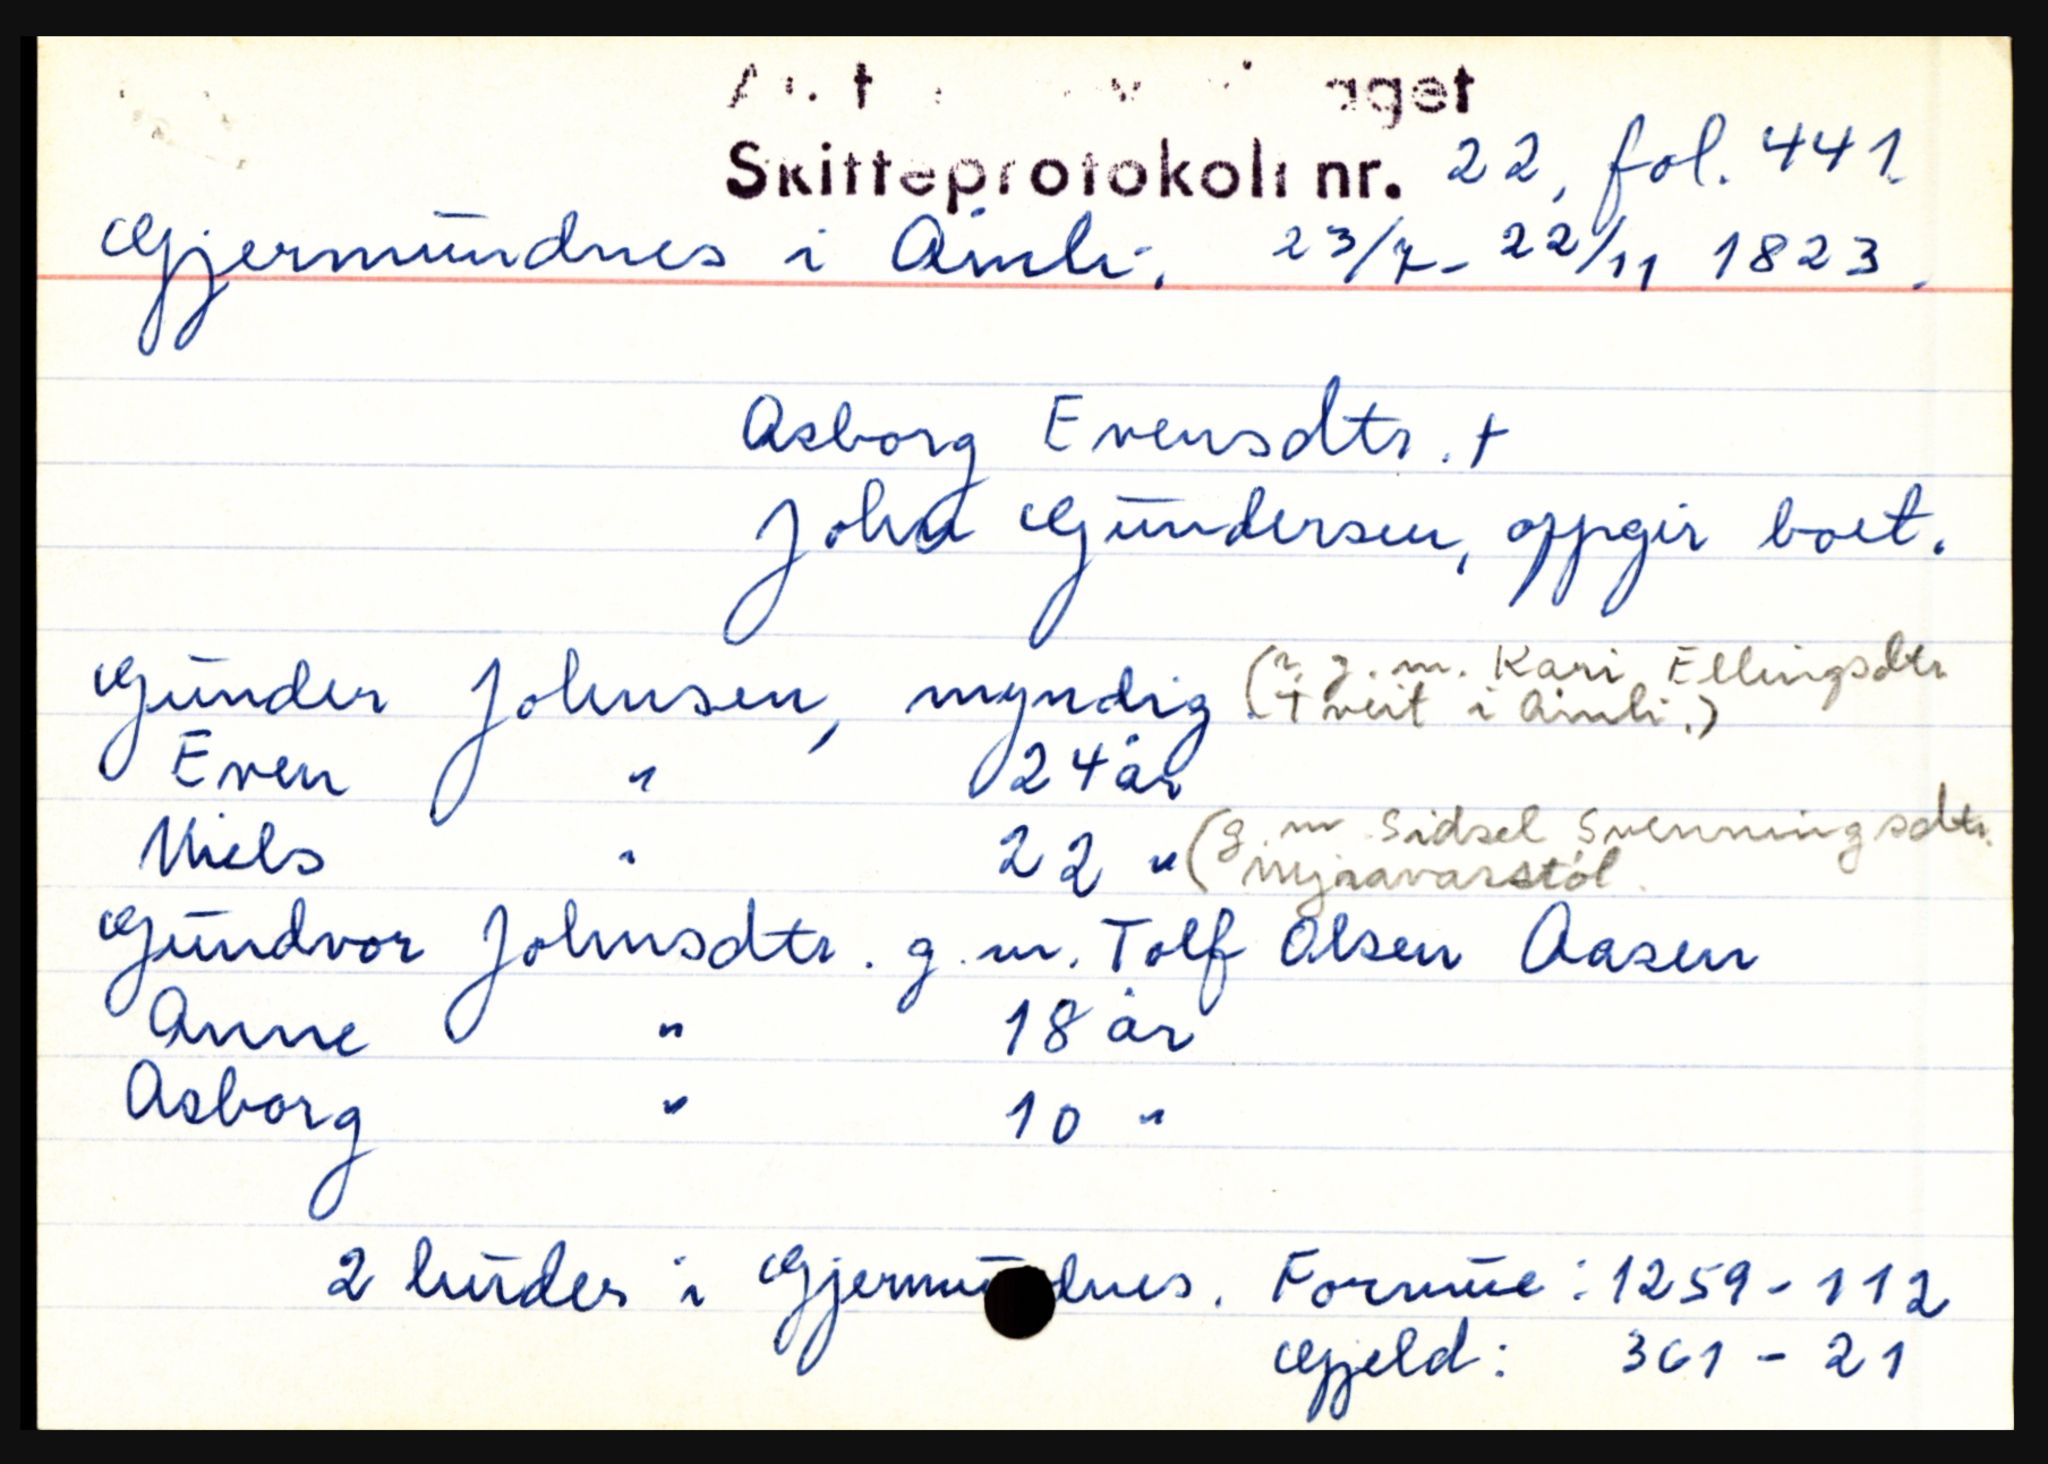 Skifteprotokoll nr. 22, fol. 441.
Gjermundnes i Åmli. 23/7 - 22/11 1823.
Asborg Evensdtr. †
John Gundersen, oppgir boet.
Gunder Johnsen, myndig (g.m. Kari Ellingsdtr
Tveit i Åmli.)
Even " 24 år
Niels " 22 " (g.m. Sidsel Svenningsdtr.
Gundvor Johnsdtr. g.m. Tolf Olsen Aasen
Anne " 18 år
Asborg " 10 "
2 huder i Gjermundnes. Formue: 1259 - 112
Gjeld: 361 - 21